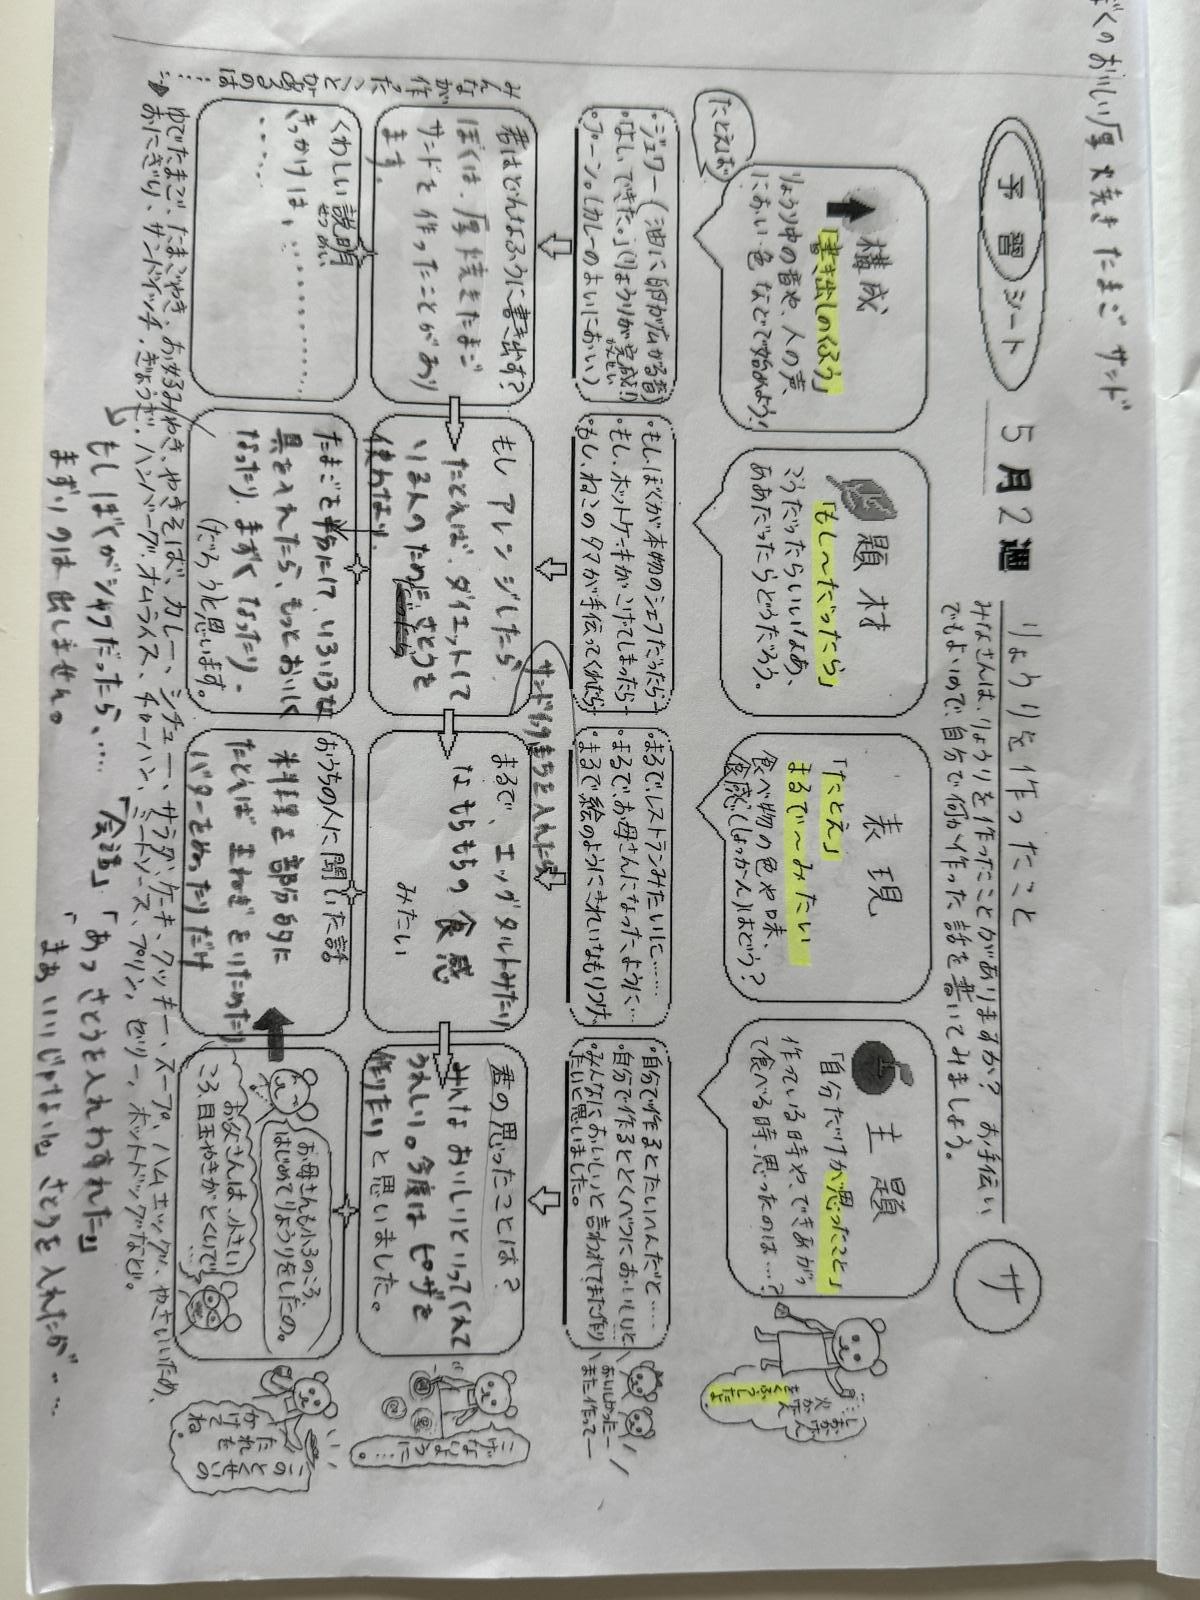 ぼくのおいしい厚焼きたまごサンド
予習シート
5月2週
りょうりを作ったこと
サ
みなさんは、りょうりを作ったことがありますか？お手伝い
でもよいので、自分で何か作った話を書いてみましょう。
構成
「書き出しのくふう」
りょうり中の音や、人の声、
におい・色などで始めよう！
たとえば
・ジュワー（油に卵が広がる音）
・「よし、できた。」（りょうりが完成！）
かんせい
・プーン。（カレーのよいにおい）
君はどんなふうに書き出す？
ぼくは、厚焼きたまご
サンドを作ったことがあり
ます。
くわしい説明
せつめい
きっかけは、………
……
題材
「もし〜だったら」
こうだったらいいなあ、
ああだったらどうだろう。
・もし、ぼくが本物のシェフだったら―
・もし、ホットケーキがこげてしまったら―
・もし、ねこのタマが手伝ってくれたら
もしアレンジしたら
サンドイッチ
を入れたら
たとえば、ダイエットして
いる人のために さとうを
使わない。
たまごを半分にして、いろいろな
具を入れたら、もっとおいしく
なったり、まずくなったり、
（だろうと思います。
表現
「たとえ」
まるで〜みたい
食べ物の色や味、
食感（しょっかん）はどう？
・まるでレストランみたいに……
・まるでお母さんになったように…
・まるで絵のようにきれいなもりつけ
まるで、エッグタルトみたい
なもちもちの食感
みたい
おうちの人に聞いた話
料理を部分的に
たとえば玉ねぎをいためたり
バターをぬったりだけ
主題
「自分だけが思ったこと」
作っている時や、できあがっ
て食べる時、思ったのは…？
・自分で作るとたいへんだと……
・自分で作るととくべつにおいしいと
・みんなにおいしいと言われてまた作り
たいと思いました。
君の思ったことは？
みんなおいしいといってくれて
うれしい。今度はピザを
作りたいと思いました。
お母さんも小3のころ、
はじめてりょうりをしたの。
お父さんは、小さい
ころ、目玉やきがとくいで…
くふうしたよ
おいしかったー
また作ってー
こげないように…
このとくせいの
たれをかけてね。
みんなが作ったことがあるのは……
ゆでたまご、たまごやき、お好みやき、やきそば、カレー、シチュー、サラダ、ケーキ、クッキー、スープ、ハムエッグ、やさいいため、
おにぎり、サンドイッチ、ぎょうざ、ハンバーグ、オムライス、チャーハン、ミートソース、プリン、ゼリー、ホットドッグなど。
もしぼくがシェフだったら、…
まずいのは出しません。
「会話」「あっさとうを入れわすれた」
「まあいいじゃないか、さとうを入れたが…